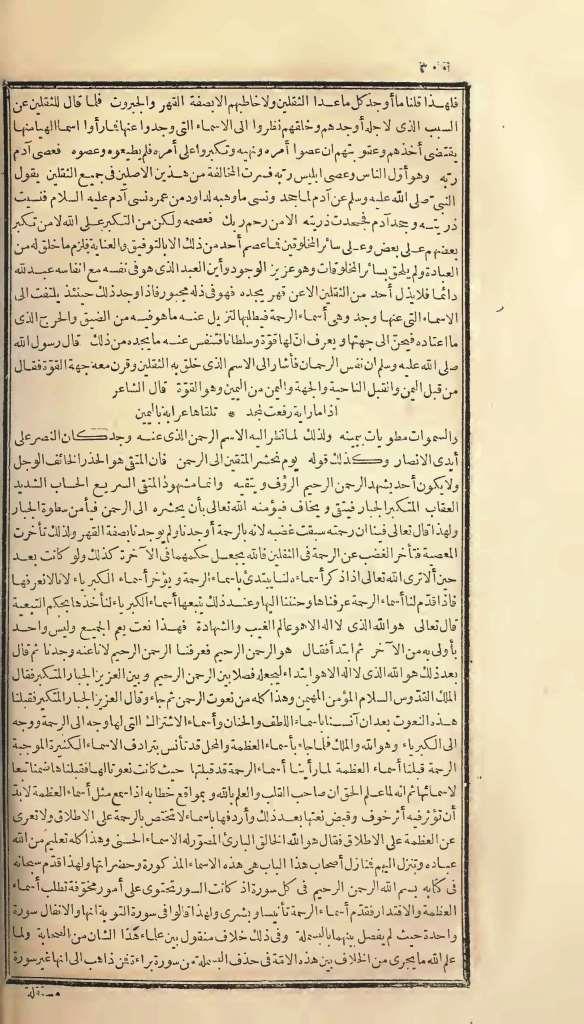 فلهذا قلنا ما أوجد كل ما عدا الثقلين ولا خاطبهم الا بصفة القهر والجبروت فلما قال للثقلين عن
السبب الذى لاجله أوجدهم وخلقهم نظروا الى الاسماء التى وجدوا عنها فما رأوا اسما الهيا منها
يقتضى أخذهم وعقوبتهم ان عصوا أمره ونهيه وتكبروا على أمره فلم يطيعوه وعصوه فعصى آدم
ربه وهو أول الناس وعصى ابليس ربه فسرت المخالفة من هذين الاصلين فى جميع الثقلين يقول
النبى صلى الله عليه وسلم عن آدم لما جحد ونسى ما وهبه لداود من عمره نسى آدم عليه السلام فنسيت
ذريته وجحد آدم فجحدت ذريته الا من رحم ربك فعصمه ولكن من التكبر على الله لا من تكبر
بعضهم على بعض وعلى سائر المخلوقين فما عصم أحد من ذلك الا بالتوفيق والعناية فلزم ما خلق له من
العبادة ولم يلحق بسائر المخلوقات وهو عزيز الوجود وأين العبد الذى هو فى نفسه مع انفاسه عبد لله
دائما فلا يذل أحد من الثقلين الا عن قهر يجده فهو فى ذله مجبور فاذا وجد ذلك حينئذ يلتفت الى
الاسماء التى عنها وجد وهى أسماء الرحمة فيطلبها لتزيل عنه ما هو فيه من الضيق والحرج الذى
ما اعتاده فيحن الى جهتها ويعرف ان لها قوة وسلطانا فتنفس عنه ما يجده من ذلك قال رسول الله
صلى الله عليه وسلم ان نفس الرحمان فأشار الى الاسم الذى خلق به الثقلين وقرن معه جهة القوة فقال
من قبل اليمن والقبل الناحية والجهة واليمن من اليمين وهو القوة قال الشاعر
اذا ما راية رفعت لمجد * تلقاها عرابة باليمين
والسموات مطويات بيمينه ولذلك لما نظر اليه الاسم الرحمن الذى عنه وجد كان النصر على
أيدى الانصار وكذلك قوله يوم نحشر المتقين الى الرحمن فان المتقى هو الحذر الخائف الوجل
ولا يكون أحد يشهد الرحمن الرحيم الرؤف ويتقيه وانما مشهود المتقى السريع الحساب الشديد
العقاب المتكبر الجبار فيتقى ويخاف فيؤمنه الله تعالى بأن يحشره الى الرحمن فيأمن سطوة الجبار
ولهذا قال تعالى فينا ان رحمته سبقت غضبه لانه بالرحمة أوجدنا ولم يوجدنا بصفة القهر ولذلك تأخرت
المعصية فتأخر الغضب عن الرحمة فى الثقلين فالله يجعل حكمهما فى الآخرة كذلك ولو كانت بعد
حين ألا ترى الله تعالى اذا ذكر أسماءه لنا يبتدئ بأسماء الرحمة ويؤخر أسماء الكبرياء لانا لا نعرفها
فاذا قدم لنا أسماء الرحمة عرفناها وحننا اليها وعند ذلك يتبعها أسماء الكبرياء لنأخذها بحكم التبعية
قال تعالى هو الله الذى لا اله الا هو عالم الغيب والشهادة فهذا نعت يعم الجميع وليس واحد
بأولى به من الآخر ثم ابتدأ فقال هو الرحمن الرحيم فعرفنا الرحمن الرحيم لانا عنه وجدنا ثم قال
بعد ذلك هو الله الذى لا اله الا هو ابتداء ليجعله فصلا بين الرحمن الرحيم وبين العزيز الجبار المتكبر فقال
الملك القدوس السلام المؤمن المهيمن وهذا كله من نعوت الرحمن ثم جاء وقال العزيز الجبار المتكبر فقبلنا
هذه النعوت بعد ان آنسنا باسماء اللطف والحنان وأسماء الاشتراك التى لها وجه الى الرحمة ووجه
الى الكبرياء وهو الله والملك فلما جاء بأسماء العظمة والمحل قد تأنس بترادف الاسماء الكثيرة الموجبة
الرحمة قبلنا أسماء العظمة لما رأينا أسماء الرحمة قد قبلتها حيث كانت نعوتا لها فقبلناها ضمنا تبعا
لاسمائها ثم انه لما علم الحق ان صاحب القلب والعلم بالله وبمواقع خطابه اذا سمع مثل أسماء العظمة لابد
أن تؤثر فيه أثر خوف وقبض نعتها بعد ذلك وأردفها باسماء لا تختص بالرحمة على الاطلاق ولا تعرى
عن العظمة على الاطلاق فقال هو الله الخالق البارئ المصور له الاسماء الحسنى وهذا كله تعليم من الله
عباده وتنزل اليهم فمنازل أصحاب هذا الباب هى هذه الاسماء المذكورة وحضراتها ولهذا قدم سبحانه
فى كتابه بسم الله الرحمن الرحيم فى كل سورة اذ كانت السور تحتوى على أمور مخوفة تطلب أسماء
العظمة والاقتدار فقدم أسماء الرحمة تأنيسا وبشرى ولهذا قالوا فى سورة التوبة انها والانفال سورة
واحدة حيث لم يفصل بينهما بالبسملة وفى ذلك خلاف منقول بين علماء هذا الشان من الصحابة ولما
علم الله ما يجرى من الخلاف بين هذه الامة فى حذف البسملة من سورة براءة فمن ذاهب الى انها غير سورة
مستقلة